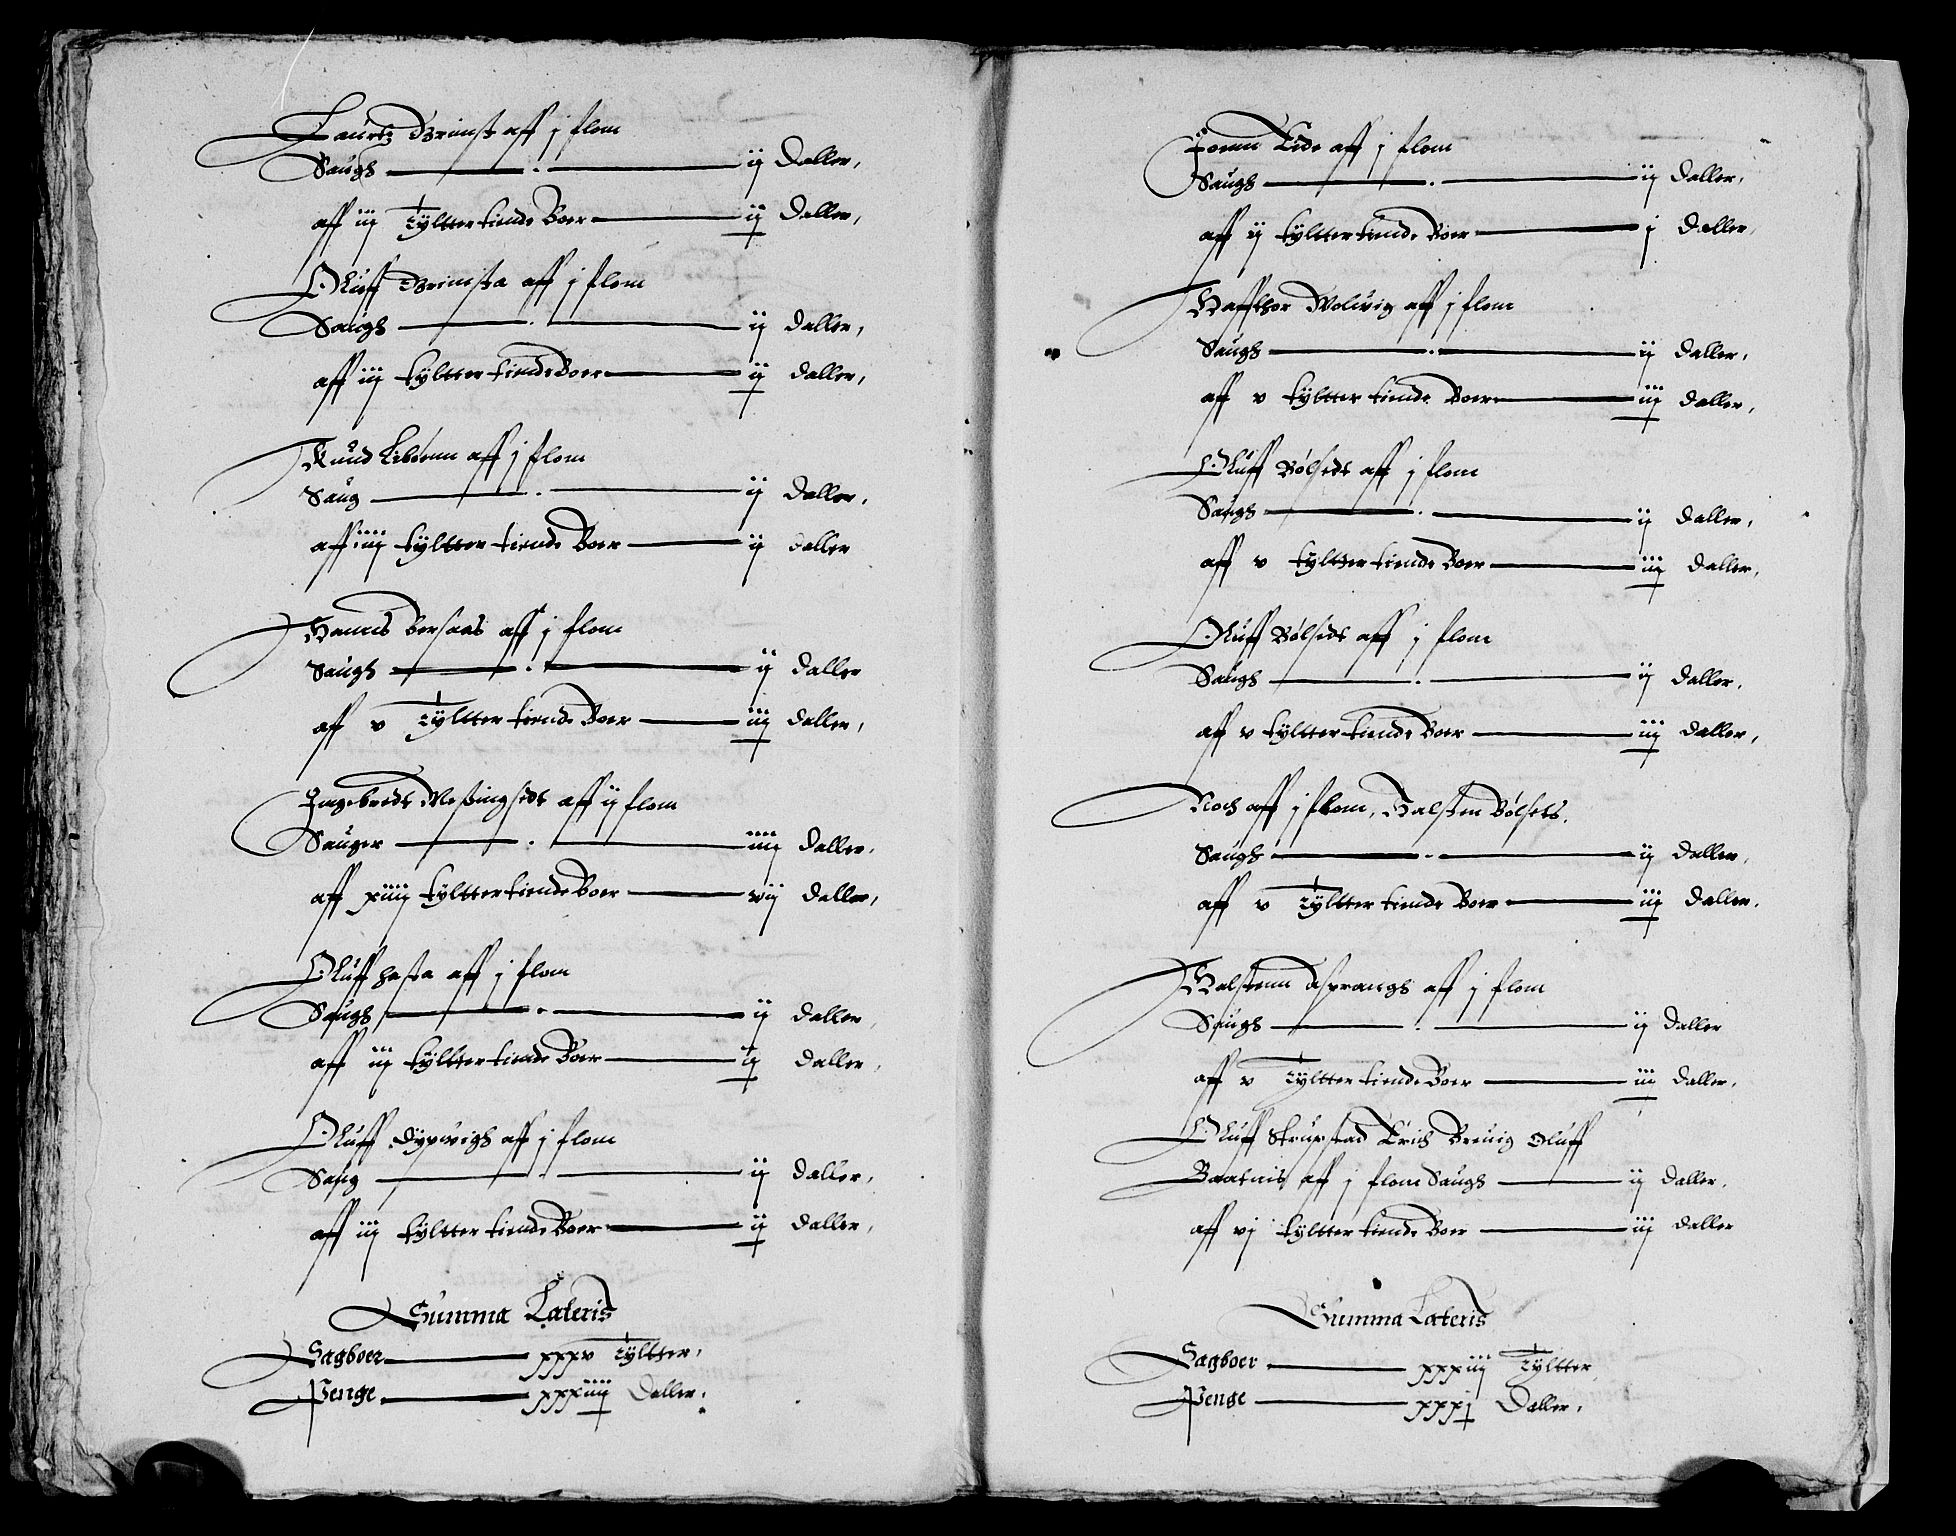 Laurtz Grimst aff j flom
Saugh ij Daller,
aff iij Tÿltter tiende Boer ij Daller,
Oluff Grimsta aff j flom
Saugh ij daller,
aff iij tÿltter tiende Boer ij daller,
Knud Liboenn aff j flom
Saug ij daller,
aff iiij tÿltter tiende Boer ij daller
Hanns Bersaas aff j flom
Saugh ij daller
aff v Tÿltter tiende Boer iij daller,
Ingebredt Messingsedt aff ij flom
Sauger iiij daller,
aff xiiij tÿltter tiende Boer vij daller,
Oluff hasta aff j flom
Saugh ij daller,
aff iij tÿltter tiende Boer ij daller,
Oluff Dÿpwigh aff j flom
Saug ij daller,
aff iij tÿltter tiende Boer ij daller,
Summa Lateris
Sagboer xxxv Tÿltter,
Penge xxxiiij Daller,
Joenn Lide aff j flom
Saugh ij daller,
aff ij tÿltter tiende Boer j daller,
Haffthor Wolwig aff j flom
Saugh ij daller,
aff v tÿltter tiende Boer iij daller,
Oluff Bølsedt aff j flom
Saugh ij daller,
aff v tÿltter tiende Boer iij daller,
Oluff Bølsedt aff j flom
Saugh ij daller,
aff v tÿltter tiende Boer iij daller,
Noch aff j flom, Halsten Bølsets.
Saugh ij daller,
aff v Tÿltter tiende Boer iij daller,
Halstenn Asprangh aff j flom
Saugh ij daller
aff v Tÿltter tiende Boer iij daller,
Oluff Strupstad Erich Breuig Oluff
Baatnis aff j flom Saugh ij daller,
aff vj tÿltter tiende Boer iij daller
Summa Lateris
Sagboer xxxiij Tÿltter,
Penge xxxj Daller,